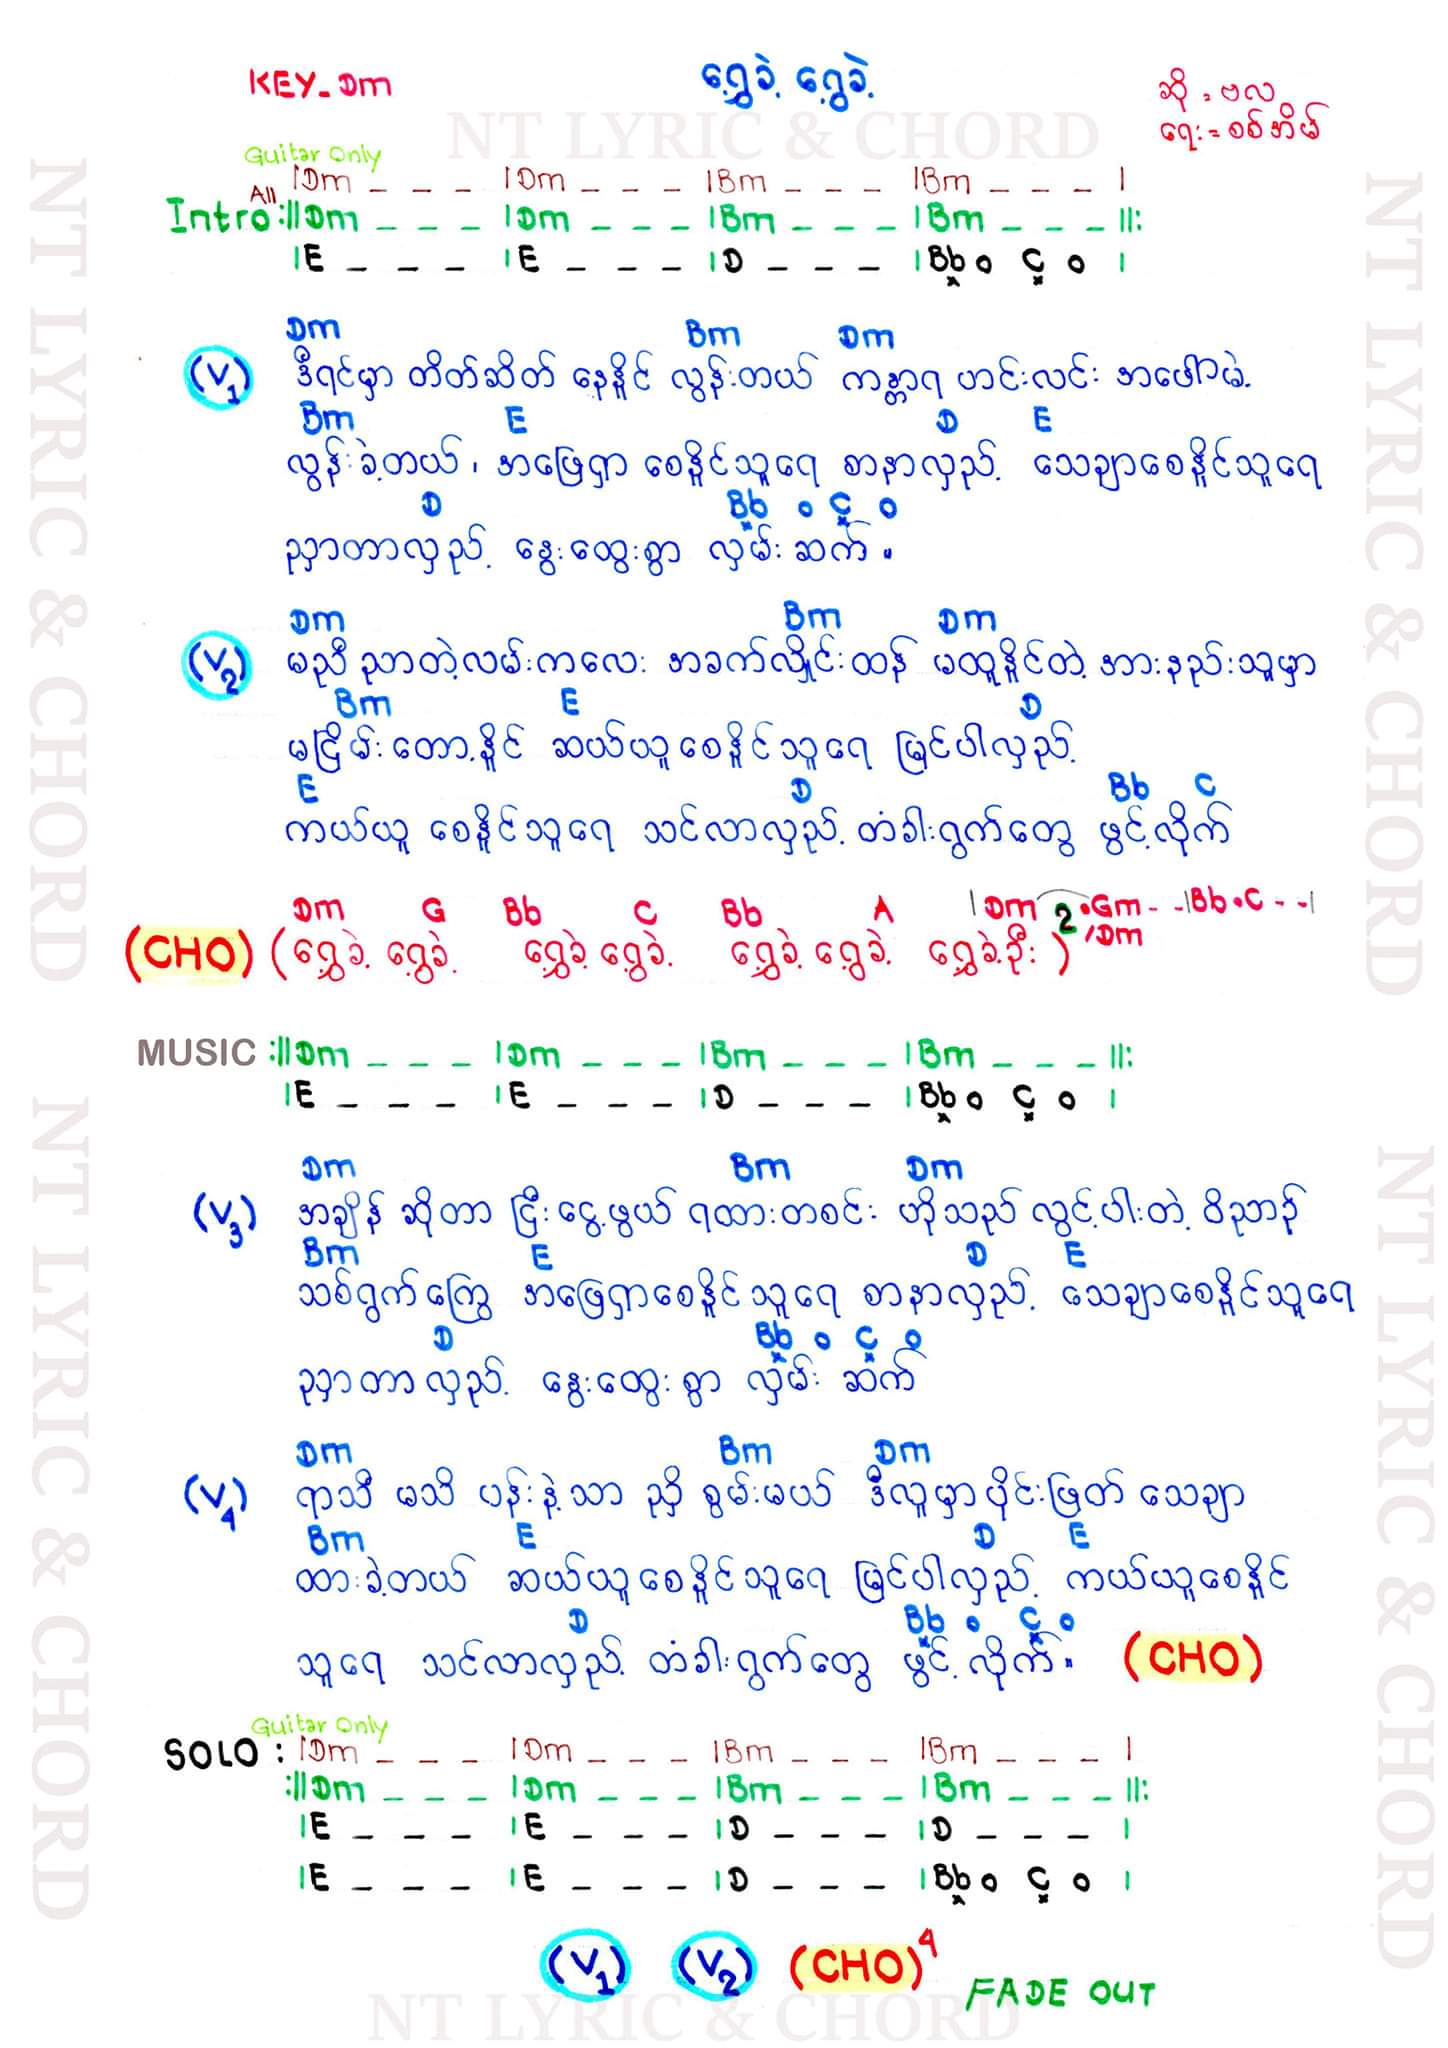 KEY_Dm
ရွှေ့ခဲ့ ရွေ့ခဲ့
ဆို = ဗလ
ရေး = စစ်အိမ်
NT LYRIC & CHORD
Guitar Only
|Dm _ _ _ |Dm _ _ _ |Bm _ _ _ |Bm _ _ _ |
All
Intro :||Dm _ _ _ |Dm _ _ _ |Bm _ _ _ |Bm _ _ _ ||:
|E _ _ _ |E _ _ _ |D _ _ _ |Bb o C o |
Dm Bm Dm
(V1) ဒီရင်မှာ တိတ်ဆိတ် နေနိူင် လွန်းတယ် ကန္တာရ ဟင်းလင်း အဖေါ်မဲ့
Bm E D E
လွန်းခဲ့တယ်၊ အဖြေရှာ စေနိူင်သူရေ စာနာလှည့် သေချာစေနိူင်သူရေ
D Bb o C o
ညှာတာလှည့် နွေးထွေးစွာ လှမ်းဆက်။
Dm Bm Dm
(V2) မညီ ညာတဲ့လမ်းကလေး အခက်လှိူင်းထန် မထူနိူင်တဲ့ အားနည်းသူမှာ
Bm E D
မငြိမ်းတော့နိူင် ဆယ်ယူစေနိူင်သူရေ မြင်ပါလှည့်
E D Bb C
ကယ်ယူ စေနိူင်သူရေ သင်လာလှည့် တံခါးရွက်တွေ ဖွင့်လိုက်
Dm G Bb C Bb A |Dm 2 •Gm - -|Bb•C - -|
/Dm
(CHO) (ရွှေ့ခဲ့ ရွေ့ခဲ့ ရွှေ့ခဲ့ ရွေ့ခဲ့ ရွှေ့ခဲ့ ရွေ့ခဲ့ ရွှေ့ခဲ့ဦး)
MUSIC :||Dm _ _ _ |Dm _ _ _ |Bm _ _ _ |Bm _ _ _ ||:
|E _ _ _ |E _ _ _ |D _ _ _ |Bb o C o |
Dm Bm Dm
(V3) အချိန် ဆိုတာ ငြီးငွေ့ဖွယ် ရထားတစင်း ဟိုသည် လွင့်ပါးတဲ့ ဝိညာဉ်
Bm E D E
သစ်ရွက်ကြွေ အဖြေရှာစေနိူင်သူရေ စာနာလှည့် သေချာစေနိူင်သူရေ
D Bb o C o
ညှာတာလှည့် နွေးထွေးစွာ လှမ်းဆက်
Dm Bm Dm
(V4) ရာသီ မသိ ပန်းနဲ့သာ ညှို စွမ်းမယ် ဒီလူမှာပိုင်းဖြတ် သေချာ
Bm E D E
ထားခဲ့တယ် ဆယ်ယူစေနိူင်သူရေ မြင်ပါလှည့် ကယ်ယူစေနိူင်
D Bb o C o
သူရေ သင်လာလှည့် တံခါးရွက်တွေ ဖွင့်လိုက်။ (CHO)
Guitar Only
SOLO : |Dm _ _ _ |Dm _ _ _ |Bm _ _ _ |Bm _ _ _ |
:||Dm _ _ _ |Dm _ _ _ |Bm _ _ _ |Bm _ _ _ ||:
|E _ _ _ |E _ _ _ |D _ _ _ |D _ _ _ |
|E _ _ _ |E _ _ _ |D _ _ _ |Bb o C o |
(V1) (V2) (CHO)4
FADE OUT
NT LYRIC & CHORD
NT LYRIC & CHORD
NT LYRIC & CHORD
NT LYRIC & CHORD
NT LYRIC & CHORD